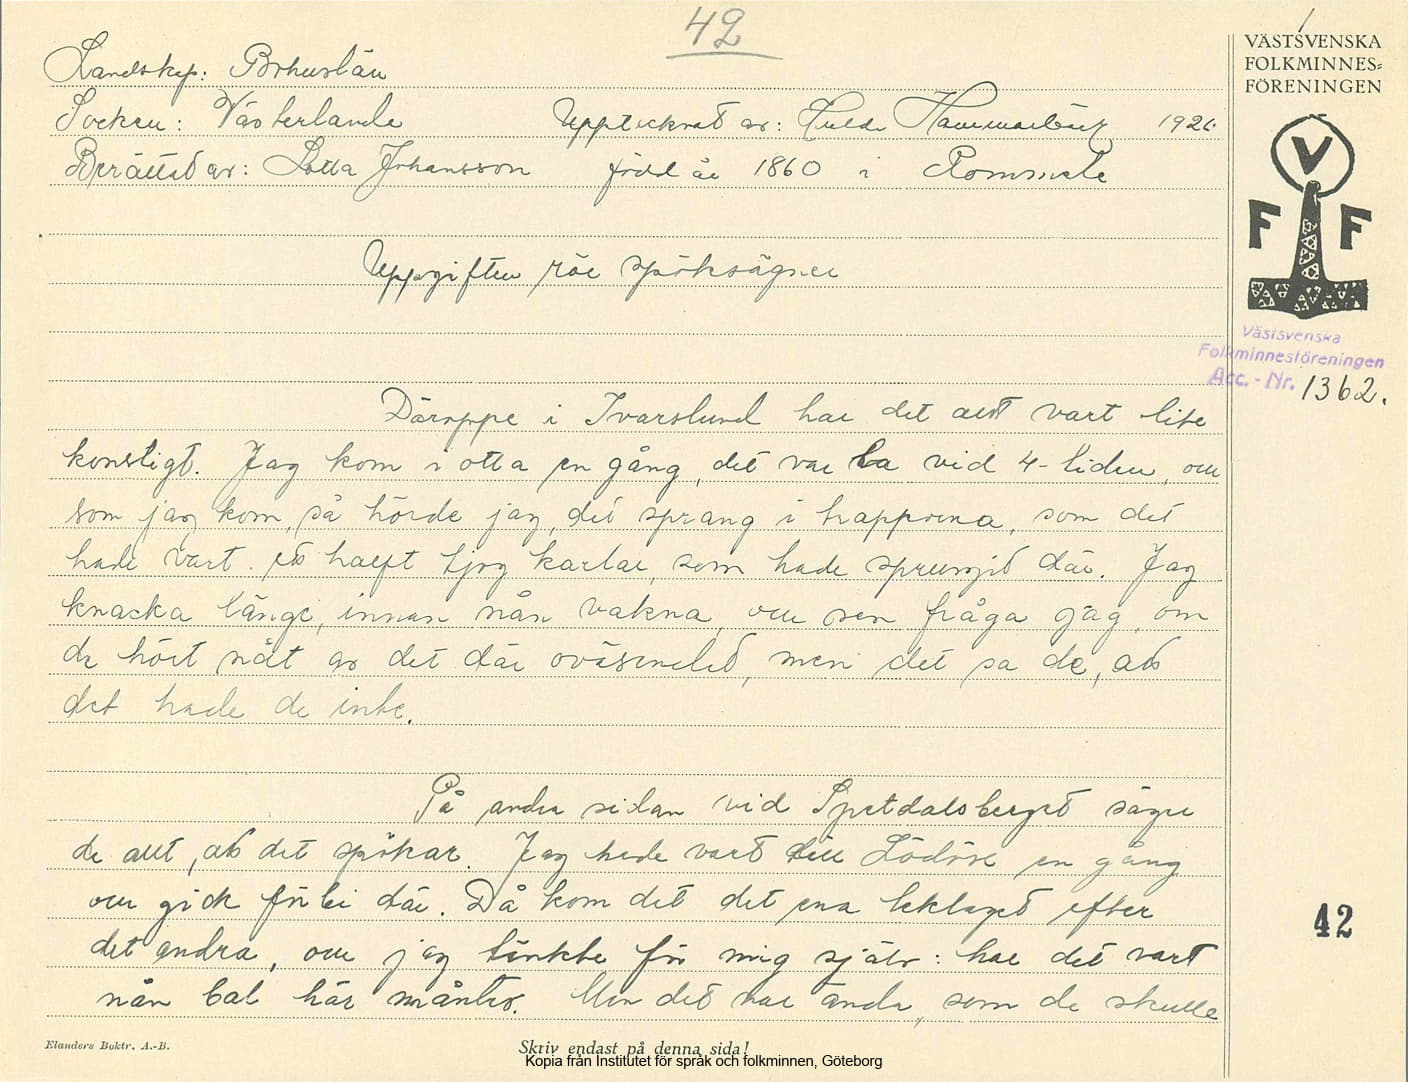 42
Landskap: Bohuslän
Socken: Västerlanda Upptecknat av: Hulda Hammarbäck 1926
Berättat av: Lotta Johansson född år 1860 i Rommele
VÄSTSVENSKA
FOLKMINNES=
FÖRENINGEN
V
F F
Uppgiften rör spöksägner
Västsvenska
Folkminnesföreningen
Acc. - Nr. 1362.
Däroppe i Ivarslund har det allt vart lite
konstigt. Jag kom i otta en gång, det var la vid 4-tiden, ou
som jag kom, så hörde jag, det sprang i trapporna, som det
hade vart ett halft tjog karlar, som hade sprungit där. Jag
knacka länge, innan nån vakna, ou sen fråga jag, om
de hört nåt av det där oväsendet, men det sa de, att
det hade de inte.
På andra sidan vid Spetdalsberget säger
de allt, att det spökar. Jag hade vart till Lödöse en gång
ou gick förbi där. Då kom det det ena ekipaget efter
det andra, ou jag tänkte för mig själv: har det vart
nån bal här måntro. Men det var andar, som de skulle
42
Elanders Boktr. A.-B.
Skriv endast på denna sida!
Kopia från Institutet för språk och folkminnen, Göteborg